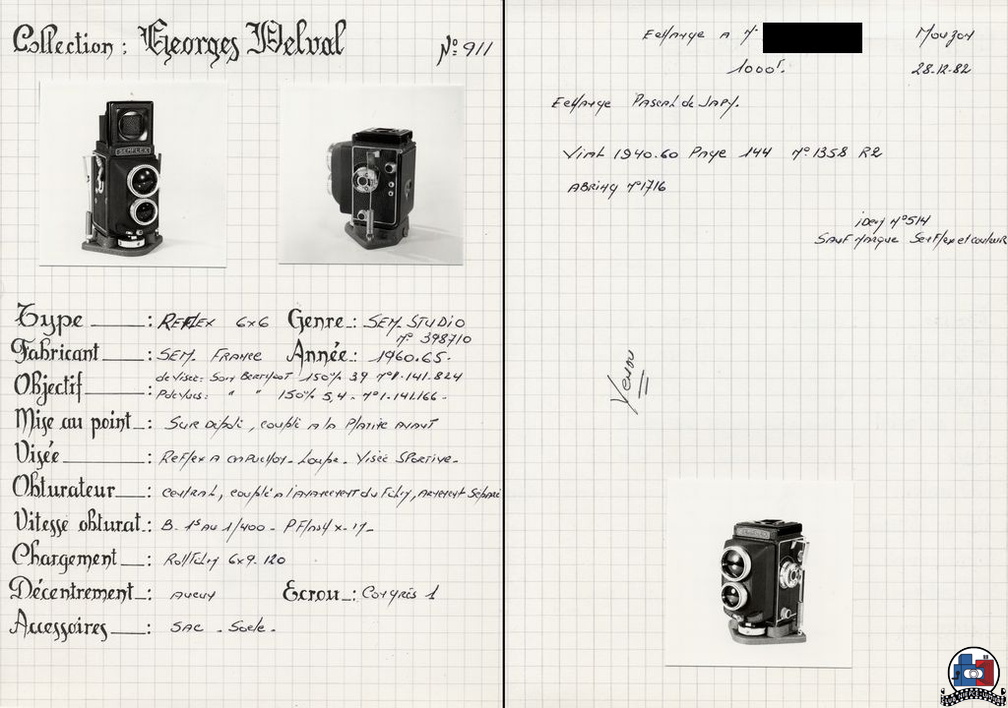 Collection : Georges Delval
N° 911
SEMFLEX
Type : REFLEX 6x6 Genre : SEM. STUDIO
n° 398710
Fabricant : SEM. FRANCE Année : 1960.65.
Objectif : de Visée: Som Berthiot 150% 39 n° 1.141.824
P. de vues: " " 150% 5,4. n° 1.141.166.
Mise au point : Sur dépoli, couplé à la Platine AVANT
Visée : Reflex à capuchon. Loupe. Visée Sportive.
Obturateur : central, couplé à l'avancement du film, armement séparé
Vitesse obturat. : B. 1s au 1/400 - P Flash x.
Chargement : Rollfilm 6x9. 120
Décentrement : aucun Ecrou : Congrès 1
Accessoires : SAC - Socle.
Echange à M.
Mouzon
1000F.
28.12.82
Echange Pascal de Japy.
Vial 1940.60 Page 144 n° 1358 R2
ABring n° 1716
idem n° 514
Sauf marque Semflex et couleur
Vendu